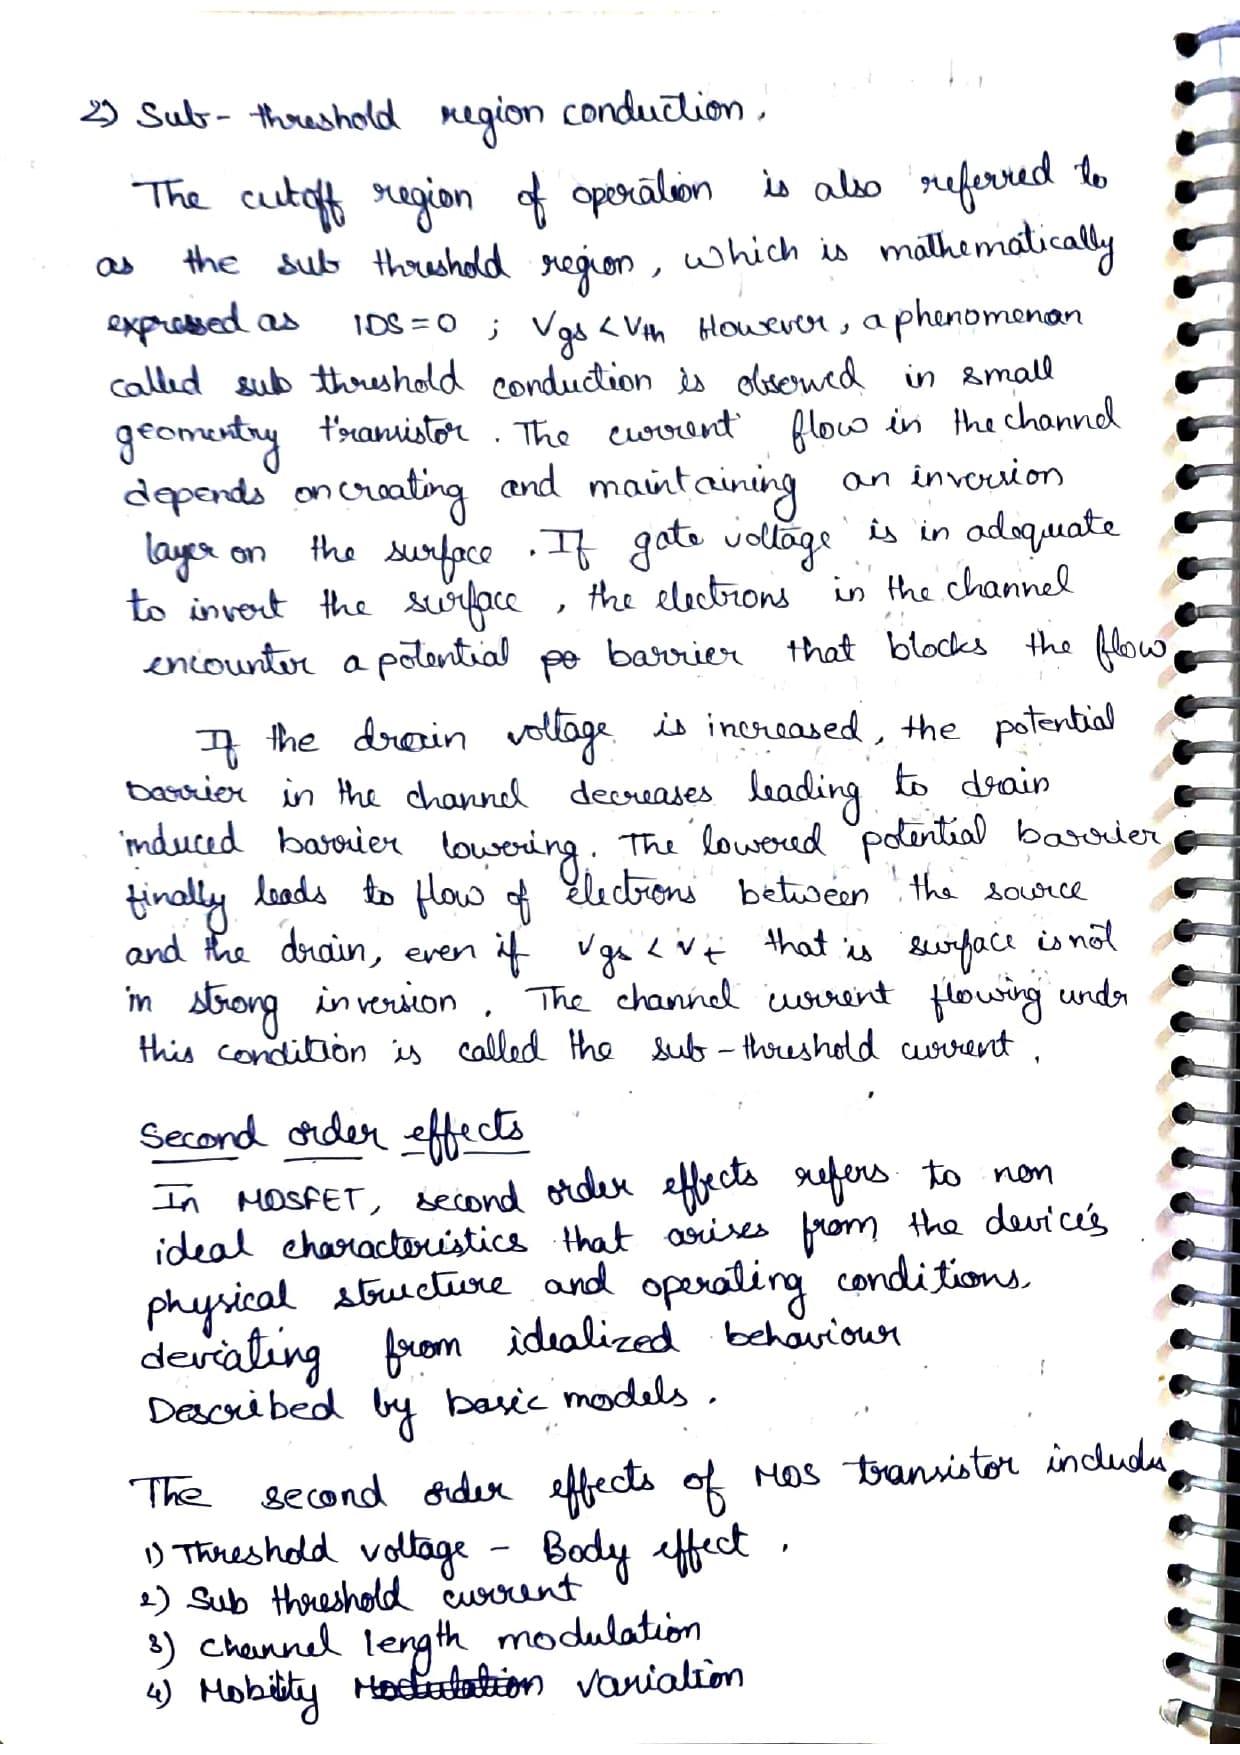 2) Sub-threshold region conduction.
The cutoff region of operation is also referred to
as the sub threshold region, which is mathematically
expressed as IDS=0 ; Vgs<Vth However, a phenomenon
called sub threshold conduction is observed in small
geomentry transistor. The current flow in the channel
depends on creating and maintaining an inversion
layer on the surface. If gate voltage is in adequate
to invert the surface, the electrons in the channel
encounter a potential po barrier that blocks the flow
If the drain voltage is increased, the potential
barrier in the channel decreases leading to drain
induced barrier lowering. The lowered potential barrier
finally leads to flow of electrons between the source
and the drain, even if Vgs<Vt that is surface is not
in strong inversion. The channel current flowing under
this condition is called the sub-threshold current.
Second order effects
In MOSFET, second order effects refers to non
ideal characteristics that arises from the device's
physical structure and operating conditions,
deviating from idealized behaviour
Described by basic models.
The second order effects of MOS transistor includes
1) Threshold voltage - Body effect.
2) Sub threshold current
3) Channel length modulation
4) Mobility Modulation variation